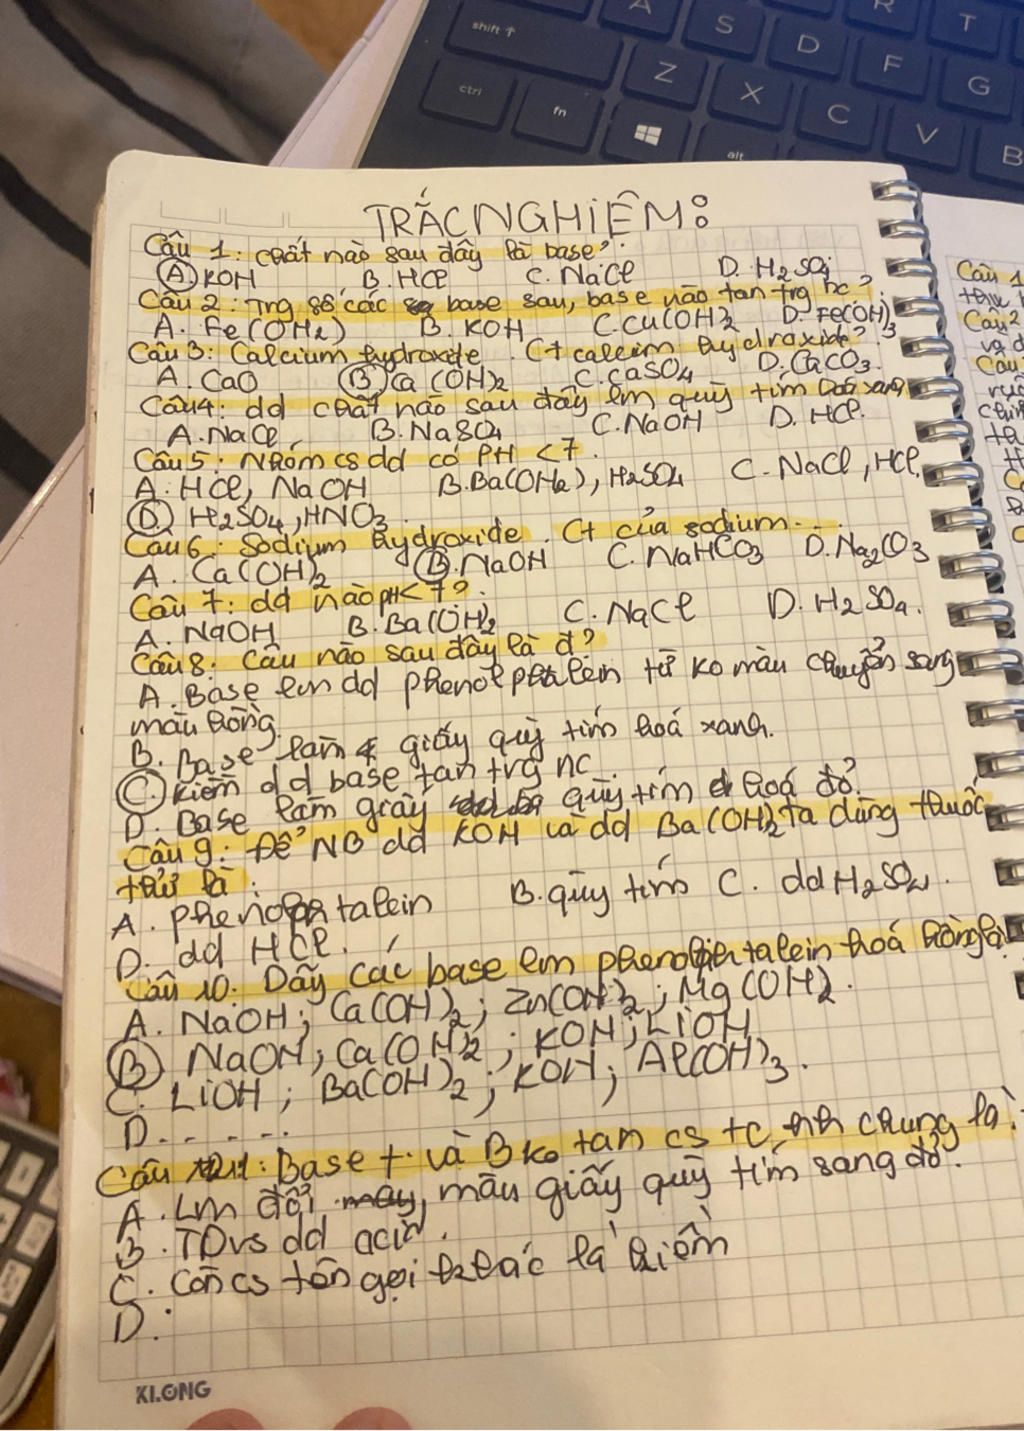 shift ↑
A
S
D
R
T
Z
D
F
G
ctrl
fn
X
C
V
B
alt
TRẮC NGHIỆM:
Câu 1: chất nào sau đây là base?
(A) KOH B. HCl C. NaCl D. H2SO4
Câu 2: Trg số các base sau, base nào tan trg nc?
A. Fe(OH2) B. KOH C. Cu(OH)2 D. Fe(OH)3
Câu 3: Calcium hydroxide. Ct calcim hydroxide?
A. CaO (B) Ca(OH)2 C. CaSO4 D. CaCO3.
Câu4: dd chất nào sau đây lm quỳ tím hoá xanh
A. NaCl B. NaSO4 C. NaOH D. HCl.
Câu 5: Nhóm cs dd có PH <7.
A. HCl, NaOH B. Ba(OH2), H2SO4 C. NaCl, HCl.
(D) H2SO4, HNO3.
Câu 6: Sodium hydroxide. Ct của sodium...
A. Ca(OH)2 (B). NaOH C. NaHCO3 D. Na2CO3
Câu 7: dd nào pH<7?
A. NaOH B. Ba(OH)2 C. NaCl D. H2SO4.
Câu 8: Câu nào sau đây là đ?
A. Base lm dd phenolphtalein từ ko màu chuyển sang
màu hồng.
B. Base làm giấy quỳ tím hoá xanh.
(C). Kiềm dd base tan trg nc
D. Base làm giấy quỳ tím hoá đỏ.
Câu 9: Để NB dd KOH và dd Ba(OH)2 ta dùng thuốc
thử là:
A. phenolphtalein B. quỳ tím C. dd H2SO4.
D. dd HCl.
Câu 10: Dãy các base lm phenolphtalein hoá hồng là
A. NaOH; Ca(OH)2; Zn(OH)2; Mg(OH)2.
(B) NaOH; Ca(OH)2; KOH; LiOH
C. LiOH; Ba(OH)2; KOH; Al(OH)3.
D. - - - - -
Câu 11: Base t. và B ko tan cs tc hh chung là:
A. Lm đổi màu giấy quỳ tím sang đỏ.
B. TDvs dd acid.
C. Còn cs tên gọi khác là kiềm
D.
KLONG
Câu 1
Câu 2
và d